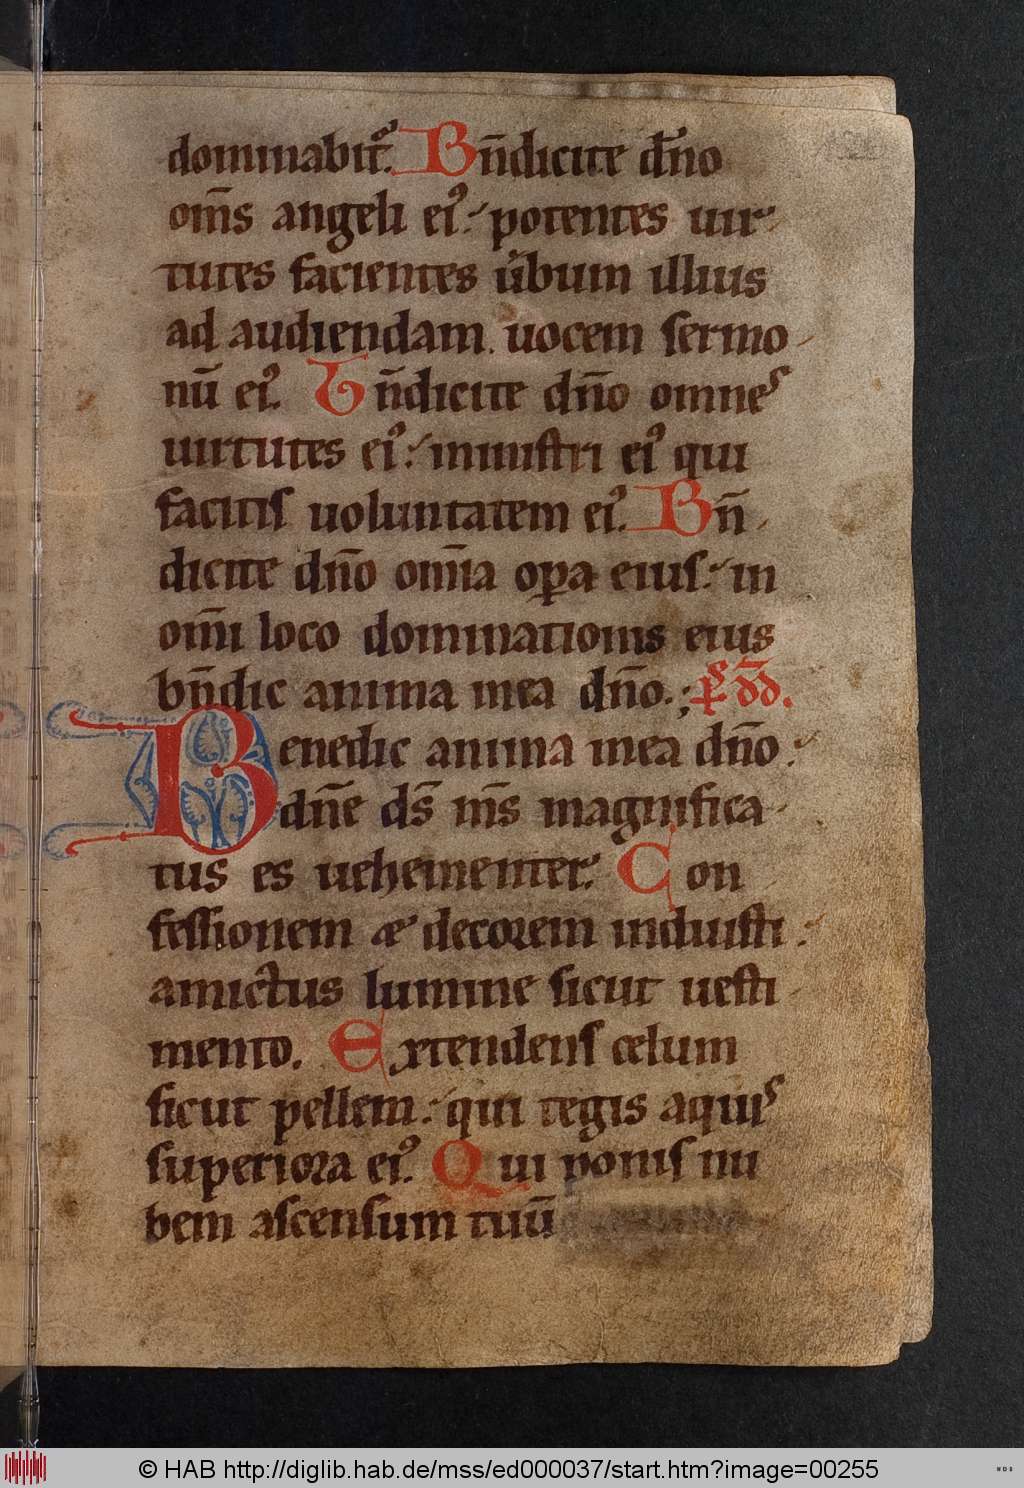 dominabit᷑. Bn̄dicite dn̄o
om̄s angeli ei᷒. potentes uir
tutes facientes u̅bum illius
ad audiendam uocem sermo
nū ei᷒. Bn̄dicite dn̄o omnes
uirtutes ei᷒. ministri ei᷒ qui
facitis uoluntatem ei᷒. Bn̄
dicite dn̄o om̄ia oꝑa eius. in
om̄i loco dominationis eius
bn̄dic anima mea dn̄o.; p̄s dd̄.
Benedic anima mea dn̄o.
dn̄e ds̄ ms̄ magnifica
tus es uehementer. Con
fessionem & decorem induisti.
amictus lumine sicut uesti
mento. Extendens celum
sicut pellem. qui tegis aquis
superiora ei᷒. Qui ponis nu
bem ascensum tuū
© HAB http://diglib.hab.de/mss/ed000037/start.htm?image=00255